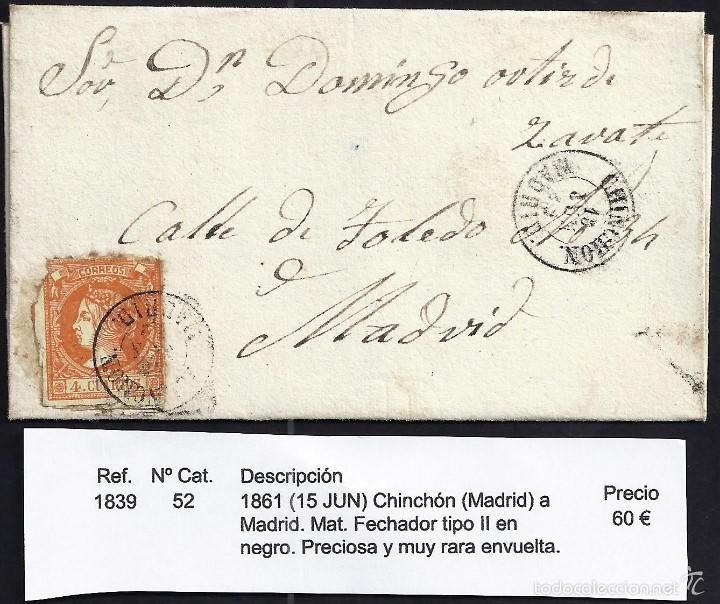 Sor. Dn Domingo ortiz de
Zarate
Calle de Toledo
Madrid
CHINCHON
MADRID
15
CORREOS
4. C
MADRID
Ref. Nº Cat. Descripción Precio
1839 52 1861 (15 JUN) Chinchón (Madrid) a 60 €
Madrid. Mat. Fechador tipo II en
negro. Preciosa y muy rara envuelta.
todocoleccion.net